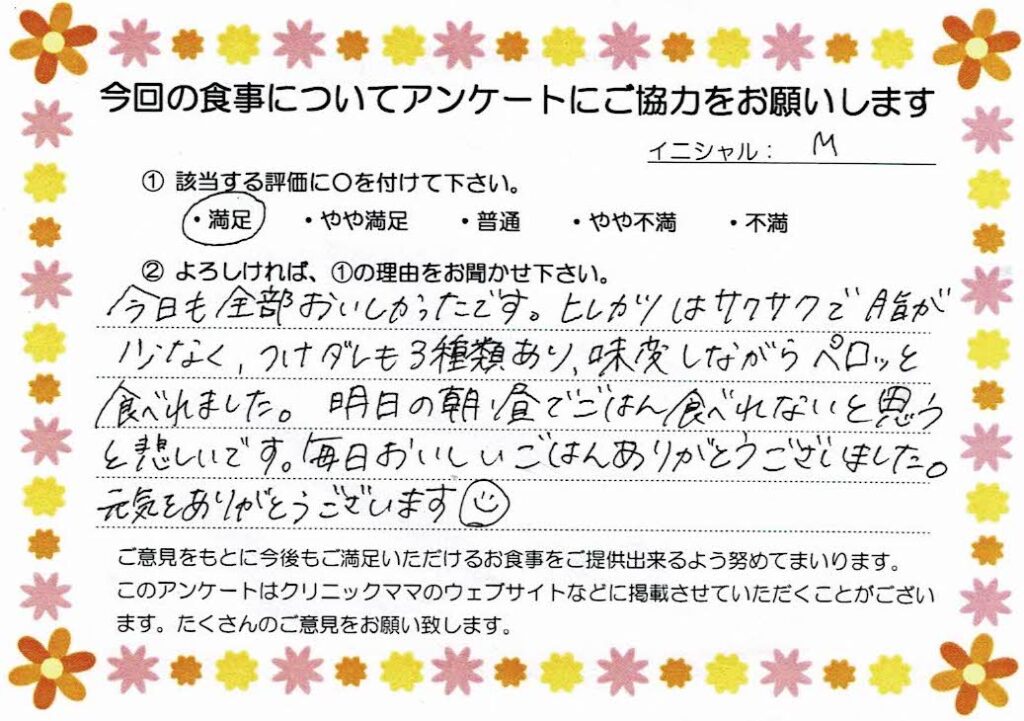 今回の食事についてアンケートにご協力をお願いします
イニシャル： M
① 該当する評価に〇を付けて下さい。
・満足 ・やや満足 ・普通 ・やや不満 ・不満
② よろしければ、①の理由をお聞かせ下さい。
今日も全部おいしかったです。ヒレカツはサクサクで脂が
少なく、つけダレも3種類あり、味変しながらペロッと
食べれました。明日の朝、昼でごはん食べれないと思う
と悲しいです。毎日おいしいごはんありがとうございました。
元気をありがとうございます
ご意見をもとに今後もご満足いただけるお食事をご提供出来るよう努めてまいります。
このアンケートはクリニックママのウェブサイトなどに掲載させていただくことがござい
ます。たくさんのご意見をお願い致します。